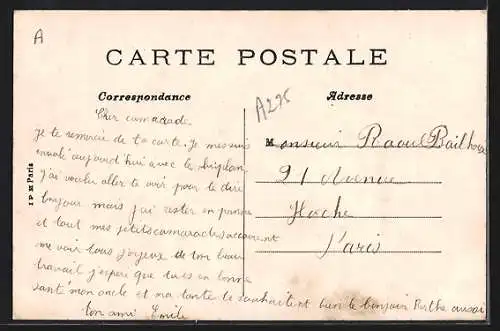 A
CARTE POSTALE
Correspondance
Adresse
A275
Cher camarade
Je te remercie de ta carte. Je me suis
envolé aujourd hui avec le
j'ai voulu aller te voir pour te dire
bonjour mais j'ai rester en panne
et tout mes petits camarades accourent
me voir tous joyeux de ton beau
travail j'esperé que tu es en bonne
santé mon oncle et ma tante te souhaitent bien le bonjour Berthe aussi
ton ami Emile
Monsieur Raoul
91 Avenue
Hoche
Paris
I P M Paris